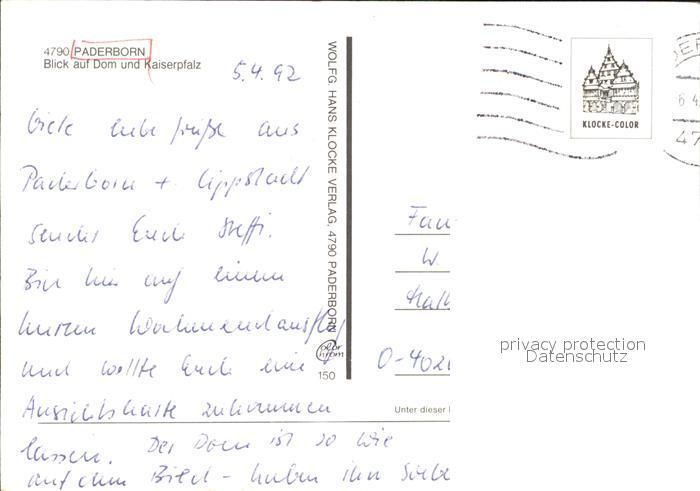 4790 PADERBORN
Blick auf Dom und Kaiserpfalz
5.4.92
Viele liebe Grüße aus
Paderborn + Lippstadt
sendet Euch Steffi.
Bin hier auf einem
kurzen Wochenendausflug
und wollte Euch eine
Ansichtskarte zukommen
lassen. Der Dom ist so wie
auf dem Bild - haben ihn
WOLFG. HANS KLOCKE VERLAG, 4790 PADERBORN
color
chrom
150
KLOCKE-COLOR
6.4
47
Fam
W.
O-402
Unter dieser
privacy protection
Datenschutz